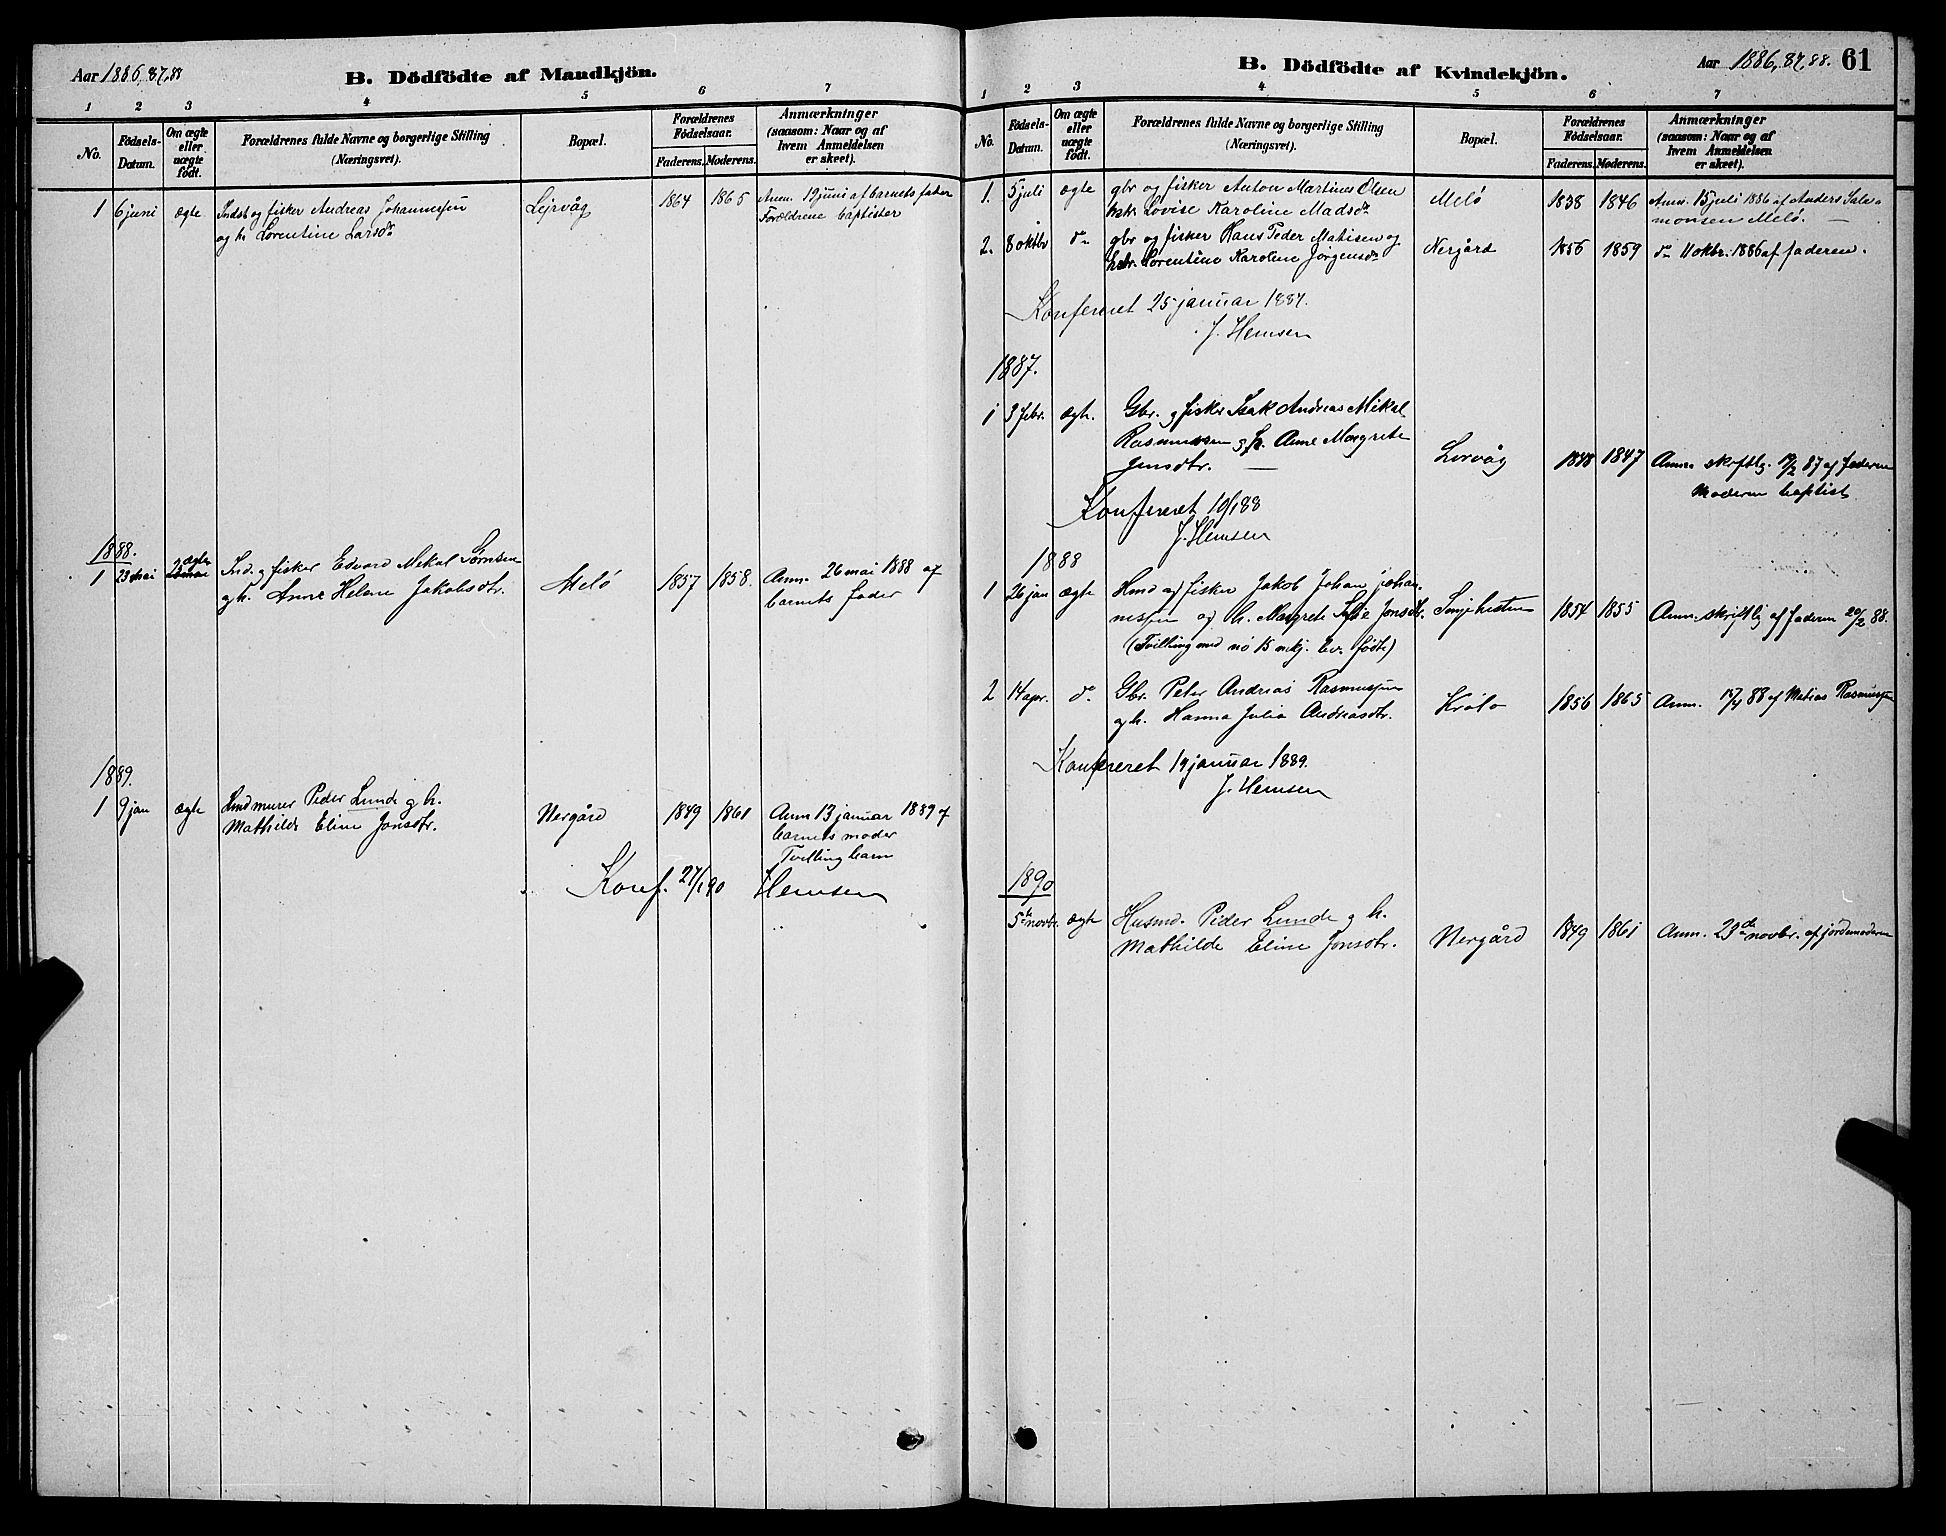 Aar 1886, 87, 88
B. Dödfödte af Mandkjön.
1 2 3 4 5 6 7
No.
Födsels-Datum.
Om ægte eller uægte födt.
Forældrenes fulde Navne og borgerlige Stilling (Næringsvei).
Bopæl.
Forældrenes Födselsaar.
Faderens. Moderens.
Anmærkninger (saasom: Naar og af hvem Anmeldelsen er skeet).
1 6 juni ægte Indst og fisker Andreas Johannessen Lejrvåg 1864 1865 Anm. 19 juni af barnets fader
og h. Lorentine Larsdr Forældrene baptister
1888.
1 23 mai ægte Ind. og fisker Edvard Mikal Sørnsen Melö 1857 1858. Anm. 26 mai 1888 af
og h. Anne Helene Jakobsdtr. barnets fader
1889.
1 9 jan ægte Lindmurer Peder Lunde og h. Nergård 1849 1861 Anm 13 januar 1889 af
Mathilde Eline Jonsdtr. barnets moder
Tvillingbarn
Konf. 27/1 90 Hemsen
B. Dödfödte af Kvindekjön.
Aar 1886, 87, 88. 61
1 2 3 4 5 6 7
No.
Födsels-Datum.
Om ægte eller uægte födt.
Forældrenes fulde Navne og borgerlige Stilling (Næringsvei).
Bopæl.
Forældrenes Födselsaar.
Faderens. Moderens.
Anmærkninger (saasom: Naar og af hvem Anmeldelsen er skeet).
1. 5 juli ægte gbr og fisker Anton Martinus Olsen Melö 1838 1846 Anm. 15 juli 1886 af Anders Salo-
Lovise Karoline Madsdr monsen Melö.
2. 8 oktbr do gbr og fisker Hans Peder Matisen og Nergård 1856 1859 do 11 oktbr. 1886 af faderen.
Lorentine Karoline Jörgensdr
Konfereret 25 januar 1887.
J. Hemsen
1887.
1 3 febr. ægte. Gbr. og fisker Isak Andreas Mikal
Rasmussen og h. Anne Margrete
Jensdtr. Lervåg 1848 1847 Anm. skriftlig. 87 af faderen
Moderen baptist
Konfereret 10/1 88
J. Hemsen
1888
1 26 jan ægte Hmd og fisker Jakob Johan Johan-
nessen og h. Margrete Sofie Jonsdtr. 1854 1855 Anm. skriftlig af faderen 20/2 88.
(Tvilling med no 15 mkj. lev. födte)
2 14 apr. do. Gbr. Peter Andreas Rasmussen
og h. Hanna Julia Andreasdtr. 1856 1865 Anm. 15/4 88 af Matias Rasmussen
Konfereret 19 januar 1889.
J. Hemsen
1890
5te novbr. ægte Husmd. Peder Lunde og h.
Mathilde Eline Jonsdtr. Nergård 1849 1861 Anm. 29de novbr. af jordemoderen